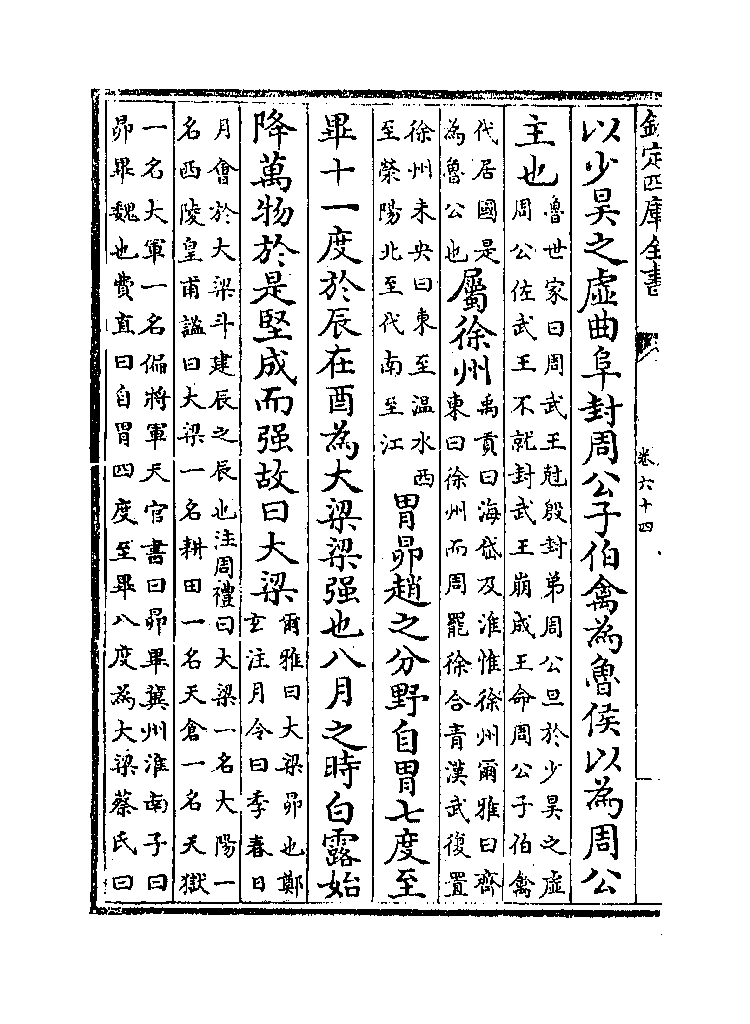 欽定四庫全書
卷六十四
以少昊之虛曲阜封周公子伯禽為魯侯以為周公
主也
魯世家曰周武王尅殷封弟周公旦於少昊之虛
周公佐武王不就封武王崩成王命周公子伯禽
代居國是
為魯公也
屬徐州
禹貢曰海岱及淮惟徐州爾雅曰齊
東曰徐州而周罷徐合青漢武復置
徐州未央曰東至温水西
至滎陽北至代南至江
胃昴趙之分野自胃七度至
畢十一度於辰在酉為大梁梁强也八月之時白露始
降萬物於是堅成而强故曰大梁
爾雅曰大梁昴也鄭
玄注月令曰季春日
月會於大梁斗建辰之辰也注周禮曰大梁一名大陽一
名西陵皇甫謐曰大梁一名耕田一名天倉一名天獄
一名大軍一名偏將軍天官書曰昴畢冀州淮南子曰
昴畢魏也費直曰自胃四度至畢八度為大梁蔡氏曰